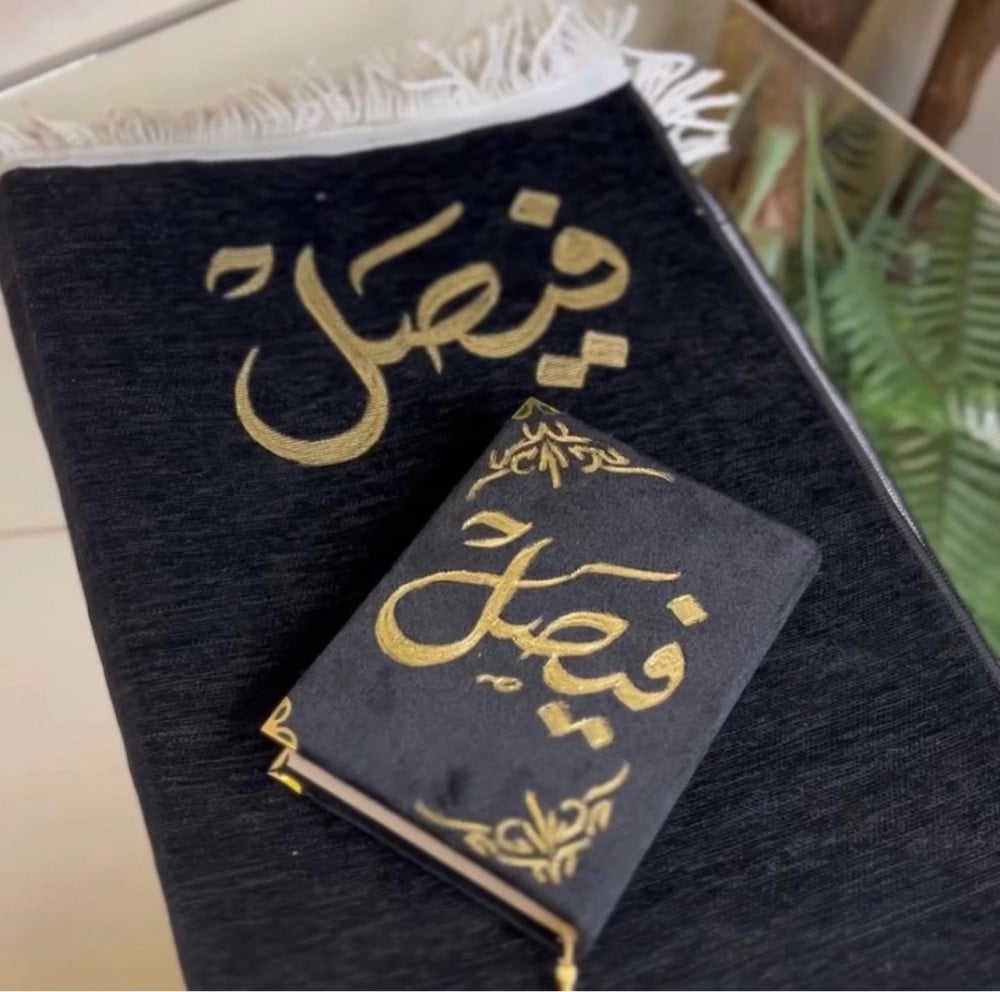 فيصل
فيصل